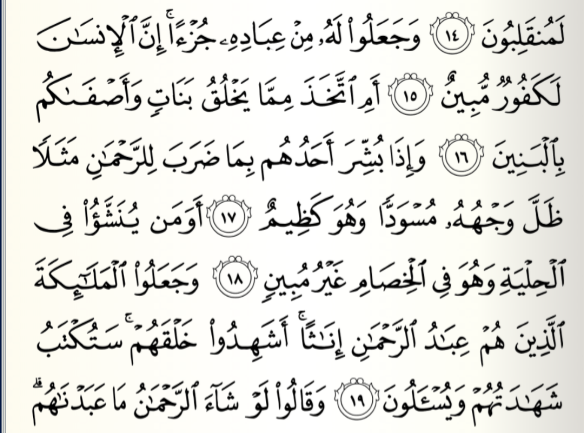 لَمُنقَلِبُونَ ١٤ وَجَعَلُوا۟ لَهُۥ مِنْ عِبَادِهِۦ جُزْءًا ۚ إِنَّ ٱلْإِنسَـٰنَ
لَكَفُورٌ مُّبِينٌ ١٥ أَمِ ٱتَّخَذَ مِمَّا يَخْلُقُ بَنَاتٍ وَأَصْفَىٰكُم
بِٱلْبَنِينَ ١٦ وَإِذَا بُشِّرَ أَحَدُهُم بِمَا ضَرَبَ لِلرَّحْمَـٰنِ مَثَلًا
ظَلَّ وَجْهُهُۥ مُسْوَدًّا وَهُوَ كَظِيمٌ ١٧ أَوَمَن يُنَشَّؤُا۟ فِى
ٱلْحِلْيَةِ وَهُوَ فِى ٱلْخِصَامِ غَيْرُ مُبِينٍ ١٨ وَجَعَلُوا۟ ٱلْمَلَـٰٓئِكَةَ
ٱلَّذِينَ هُمْ عِبَـٰدُ ٱلرَّحْمَـٰنِ إِنَـٰثًا ۚ أَشَهِدُوا۟ خَلْقَهُمْ ۚ سَتُكْتَبُ
شَهَـٰدَتُهُمْ وَيُسْـَٔلُونَ ١٩ وَقَالُوا۟ لَوْ شَآءَ ٱلرَّحْمَـٰنُ مَا عَبَدْنَـٰهُم ۗ